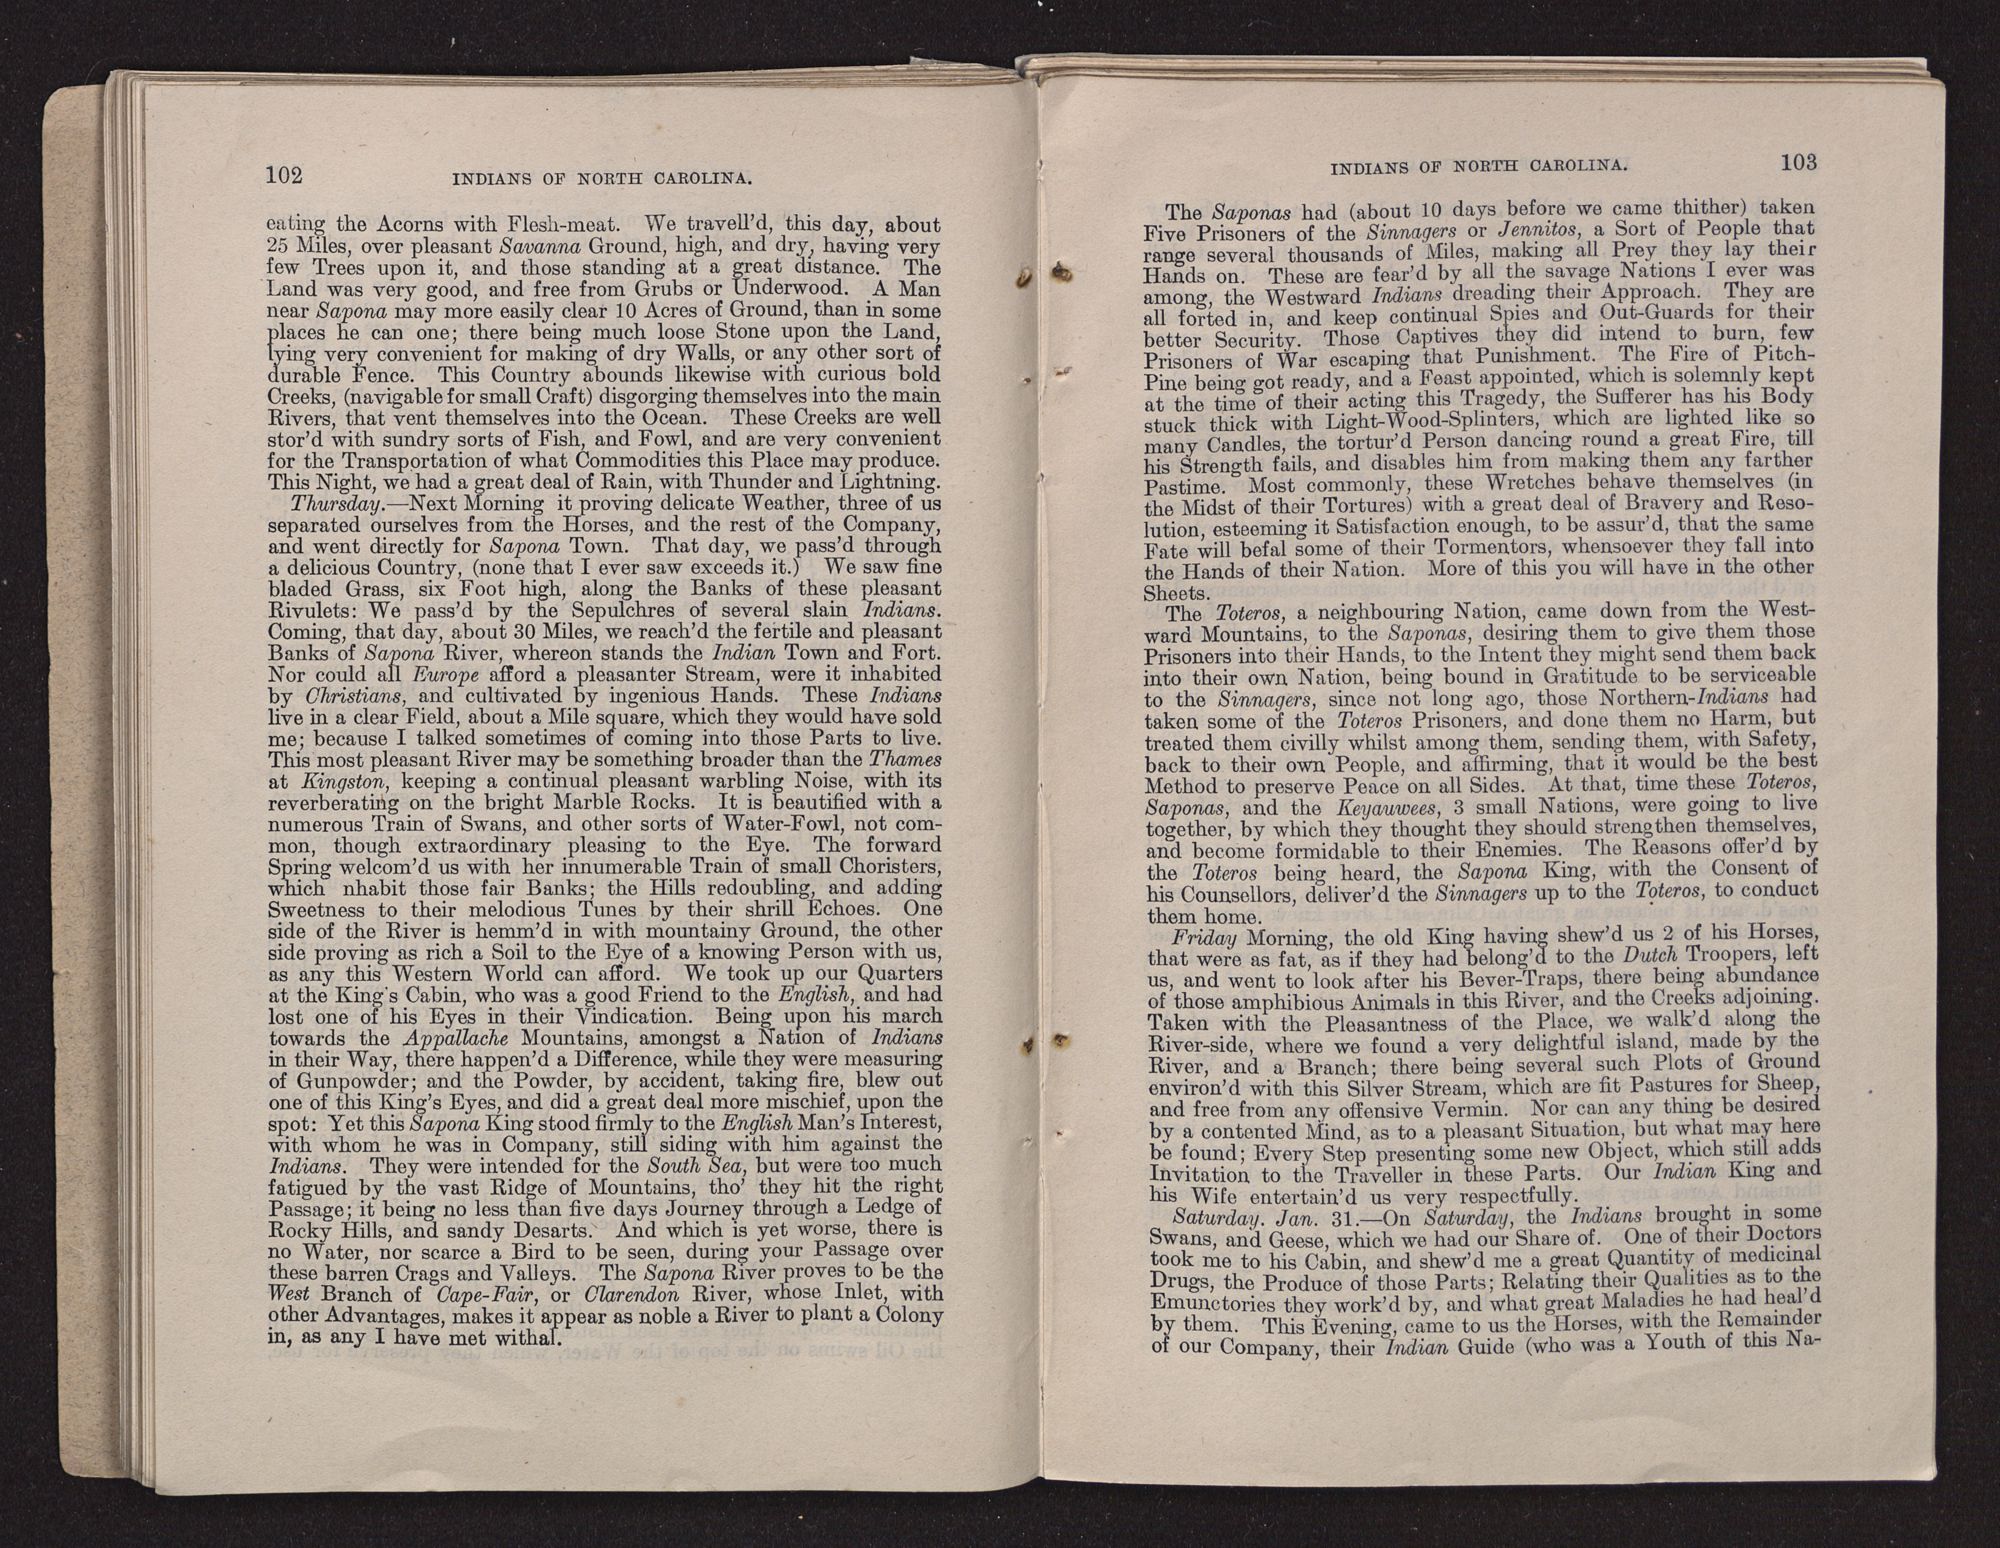 102
INDIANS OF NORTH CAROLINA.
eating the Acorns with Flesh-meat. We travell'd, this day, about
25 Miles, over pleasant Savanna Ground, high, and dry, having very
few Trees upon it, and those standing at a great distance. The
Land was very good, and free from Grubs or Underwood. A Man
near Sapona may more easily clear 10 Acres of Ground, than in some
places he can one; there being much loose Stone upon the Land,
lying very convenient for making of dry Walls, or any other sort of
durable Fence. This Country abounds likewise with curious bold
Creeks, (navigable for small Craft) disgorging themselves into the main
Rivers, that vent themselves into the Ocean. These Creeks are well
stor'd with sundry sorts of Fish, and Fowl, and are very convenient
for the Transportation of what Commodities this Place may produce.
This Night, we had a great deal of Rain, with Thunder and Lightning.
Thursday.—Next Morning it proving delicate Weather, three of us
separated ourselves from the Horses, and the rest of the Company,
and went directly for Sapona Town. That day, we pass'd through
a delicious Country, (none that I ever saw exceeds it.) We saw fine
bladed Grass, six Foot high, along the Banks of these pleasant
Rivulets: We pass'd by the Sepulchres of several slain Indians.
Coming, that day, about 30 Miles, we reach'd the fertile and pleasant
Banks of Sapona River, whereon stands the Indian Town and Fort.
Nor could all Europe afford a pleasanter Stream, were it inhabited
by Christians, and cultivated by ingenious Hands. These Indians
live in a clear Field, about a Mile square, which they would have sold
me; because I talked sometimes of coming into those Parts to live.
This most pleasant River may be something broader than the Thames
at Kingston, keeping a continual pleasant warbling Noise, with its
reverberating on the bright Marble Rocks. It is beautified with a
numerous Train of Swans, and other sorts of Water-Fowl, not com-
mon, though extraordinary pleasing to the Eye. The forward
Spring welcom'd us with her innumerable Train of small Choristers,
which nhabit those fair Banks; the Hills redoubling, and adding
Sweetness to their melodious Tunes by their shrill Echoes. One
side of the River is hemm'd in with mountainy Ground, the other
side proving as rich a Soil to the Eye of a knowing Person with us,
as any this Western World can afford. We took up our Quarters
at the King's Cabin, who was a good Friend to the English, and had
lost one of his Eyes in their Vindication. Being upon his march
towards the Appallache Mountains, amongst a Nation of Indians
in their Way, there happen'd a Difference, while they were measuring
of Gunpowder; and the Powder, by accident, taking fire, blew out
one of this King's Eyes, and did a great deal more mischief, upon the
spot: Yet this Sapona King stood firmly to the English Man's Interest,
with whom he was in Company, still siding with him against the
Indians. They were intended for the South Sea, but were too much
fatigued by the vast Ridge of Mountains, tho' they hit the right
Passage; it being no less than five days Journey through a Ledge of
Rocky Hills, and sandy Desarts. And which is yet worse, there is
no Water, nor scarce a Bird to be seen, during your Passage over
these barren Crags and Valleys. The Sapona River proves to be the
West Branch of Cape-Fair, or Clarendon River, whose Inlet, with
other Advantages, makes it appear as noble a River to plant a Colony
in, as any I have met withal.
INDIANS OF NORTH CAROLINA.
103
The Saponas had (about 10 days before we came thither) taken
Five Prisoners of the Sinnagers or Jennitos, a Sort of People that
range several thousands of Miles, making all Prey they lay their
Hands on. These are fear'd by all the savage Nations I ever was
among, the Westward Indians dreading their Approach. They are
all forted in, and keep continual Spies and Out-Guards for their
better Security. Those Captives they did intend to burn, few
Prisoners of War escaping that Punishment. The Fire of Pitch-
Pine being got ready, and a Feast appointed, which is solemnly kept
at the time of their acting this Tragedy, the Sufferer has his Body
stuck thick with Light-Wood-Splinters, which are lighted like so
many Candles, the tortur'd Person dancing round a great Fire, till
his Strength fails, and disables him from making them any farther
Pastime. Most commonly, these Wretches behave themselves (in
the Midst of their Tortures) with a great deal of Bravery and Reso-
lution, esteeming it Satisfaction enough, to be assur'd, that the same
Fate will befal some of their Tormentors, whensoever they fall into
the Hands of their Nation. More of this you will have in the other
Sheets.
The Toteros, a neighbouring Nation, came down from the West-
ward Mountains, to the Saponas, desiring them to give them those
Prisoners into their Hands, to the Intent they might send them back
into their own Nation, being bound in Gratitude to be serviceable
to the Sinnagers, since not long ago, those Northern-Indians had
taken some of the Toteros Prisoners, and done them no Harm, but
treated them civilly whilst among them, sending them, with Safety,
back to their own People, and affirming, that it would be the best
Method to preserve Peace on all Sides. At that, time these Toteros,
Saponas, and the Keyauwees, 3 small Nations, were going to live
together, by which they thought they should strengthen themselves,
and become formidable to their Enemies. The Reasons offer'd by
the Toteros being heard, the Sapona King, with the Consent of
his Counsellors, deliver'd the Sinnagers up to the Toteros, to conduct
them home.
Friday Morning, the old King having shew'd us 2 of his Horses,
that were as fat, as if they had belong'd to the Dutch Troopers, left
us, and went to look after his Bever-Traps, there being abundance
of those amphibious Animals in this River, and the Creeks adjoining.
Taken with the Pleasantness of the Place, we walk'd along the
River-side, where we found a very delightful island, made by the
River, and a Branch; there being several such Plots of Ground
environ'd with this Silver Stream, which are fit Pastures for Sheep,
and free from any offensive Vermin. Nor can any thing be desired
by a contented Mind, as to a pleasant Situation, but what may here
be found; Every Step presenting some new Object, which still adds
Invitation to the Traveller in these Parts. Our Indian King and
his Wife entertain'd us very respectfully.
Saturday. Jan. 31.—On Saturday, the Indians brought in some
Swans, and Geese, which we had our Share of. One of their Doctors
took me to his Cabin, and shew'd me a great Quantity of medicinal
Drugs, the Produce of those Parts; Relating their Qualities as to the
Emunctories they work'd by, and what great Maladies he had heal'd
by them. This Evening, came to us the Horses, with the Remainder
of our Company, their Indian Guide (who was a Youth of this Na-